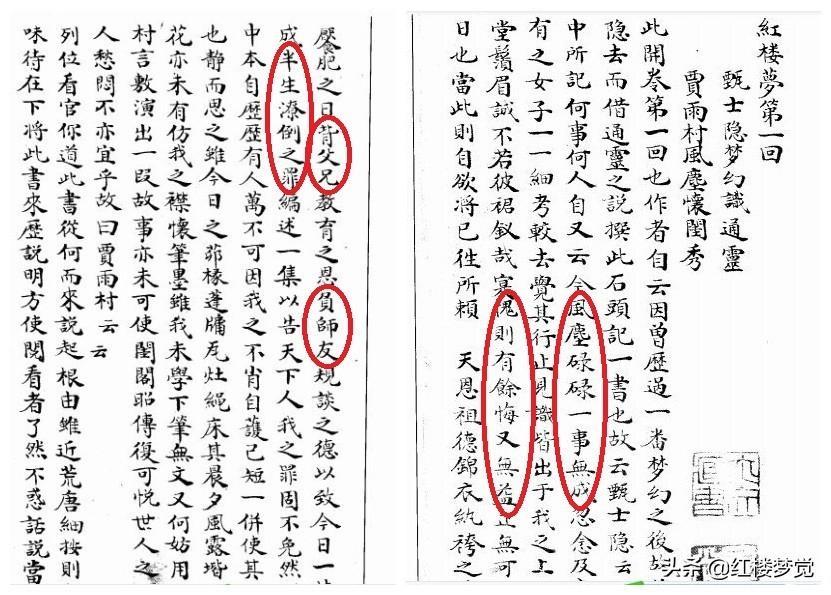 紅楼夢第一回
甄士隐梦幻識通靈
賈雨村風塵懷閨秀
此開卷第一回也作者自云因曾歷過一番梦幻之後故
隐去而借通靈之説撰此石頭記一書也故云甄士隐云
中所記何事何人自又云今風塵碌碌一事無成忽念及
有之女子一一細考較去覺其行止見識皆出于我之上
堂鬚眉誠不若彼裙釵哉寔愧則有餘悔又無益無可
日也當此則自欲將已徃所賴 天恩祖德錦衣紈袴之
饜肥之日背父兄教育之恩負師友規談之德以致今日一
成半生潦倒之罪編述一集以告天下人我之罪固不免然
中本自歷歷有人萬不可因我之不肖自護己短一併使其
也静而思之雖今日之茆椽蓬牖瓦灶繩床其晨夕風露堦
花亦未有仿我之襟懷筆墨雖我未學下筆無文又何妨用
村言敷演出一叚故事亦未可使閨閣昭傳復可悦世人之
人愁悶不亦宜乎故曰賈雨村云云
列位看官你道此書從何而來説起根由雖近荒唐細按則
味待在下將此書來歷説明方使閱看者了然不惑話説當
头条 @红楼梦觉